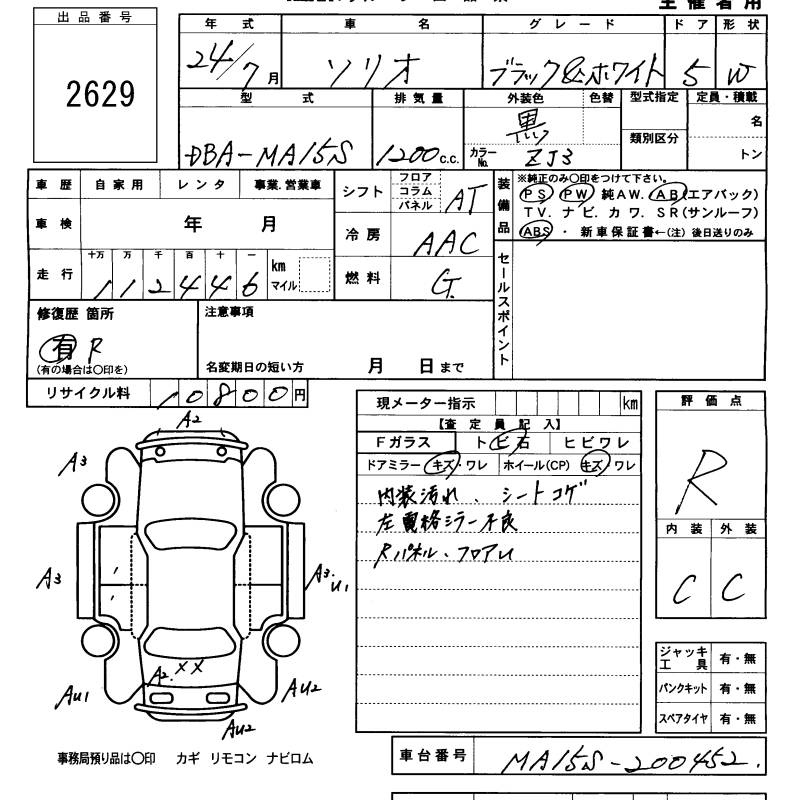 主催者用
出品番号
2629
年式 車名 グレード ドア 形状
24/7月 ソリオ ブラック&ホワイト 5 W
型式 排気量 外装色 色替 型式指定 定員・積載
DBA-MA15S 1200c.c. 黒 類別区分 名
カラーNo. ZJ3 トン
車歴 自家用 レンタ 事業.営業車 シフト フロア コラム パネル AT
装備品 ※純正のみ〇印をつけて下さい。
PS PW 純AW. AB(エアバック)
TV. ナビ. カワ. SR(サンルーフ)
ABS ・ 新車保証書←(注)後日送りのみ
車検 年 月 冷房 AAC
走行 十万 万 千 百 十 一 km マイル
112446
燃料 G
セールスポイント
修復歴 箇所
有 R
(有の場合は〇印を)
注意事項
名変期日の短い方 月 日まで
リサイクル料 10800円
現メーター指示 km
【査定員記入】
Fガラス トビ石 ヒビワレ
ドアミラー キズ・ワレ ホイール(CP) キズ・ワレ
内装汚れ、シートコゲ
左電格ミラー不良
Rパネル、フロアU
評価点
R
内装 外装
C C
A2
A3
A3
A3.
U1
A2. XX
AU1
AU2
AU2
ジャッキ工具 有・無
パンクキット 有・無
スペアタイヤ 有・無
事務局預り品は〇印 カギ リモコン ナビロム
車台番号 MA15S-200452.